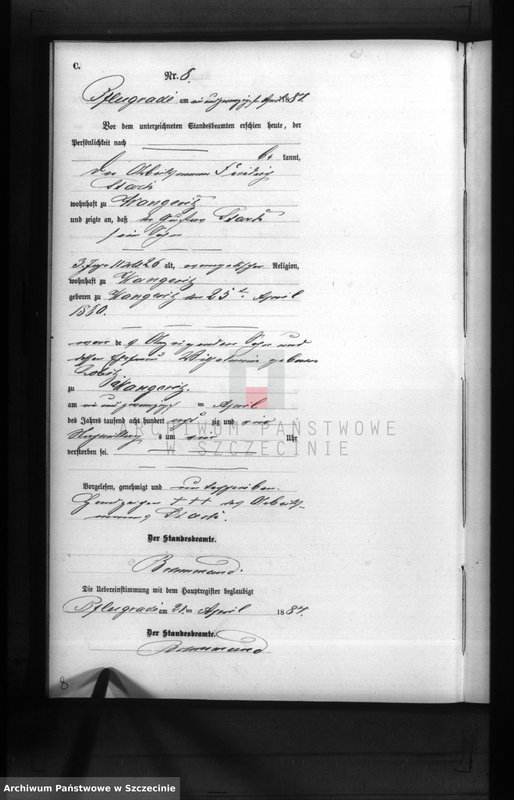 C.
Nr. 8.
Pflugrade am ein und zwanzigsten April 1884.
Vor dem unterzeichneten Standesbeamten erschien heute, der
Persönlichkeit nach
be kannt,
der Arbeitsmann Friedrich
Stark
wohnhaft zu Wangeritz
und zeigte an, daß der Gustav Stark
sein Sohn
alt, evangelischer Religion,
wohnhaft zu Wangeritz
geboren zu Wangeritz den 25 April
1880.
des Anzeigenden Sohn und
dessen Ehefrau Wilhelmine geborene
zu Wangeritz.
am ein und zwanzigsten April
des Jahres tausend acht hundert achtzig und vier
Vormittags um Uhr
verstorben sei.
Vorgelesen, genehmigt und unterschrieben.
Handzeichen +++ des Arbeits-
manns Stark.
Der Standesbeamte.
Die Uebereinstimmung mit dem Hauptregister beglaubigt
Pflugrade am 21. ten April 1884.
Der Standesbeamte.
8
ARCHIWUM PAŃSTWOWE
W SZCZECINIE
Archiwum Państwowe w Szczecinie